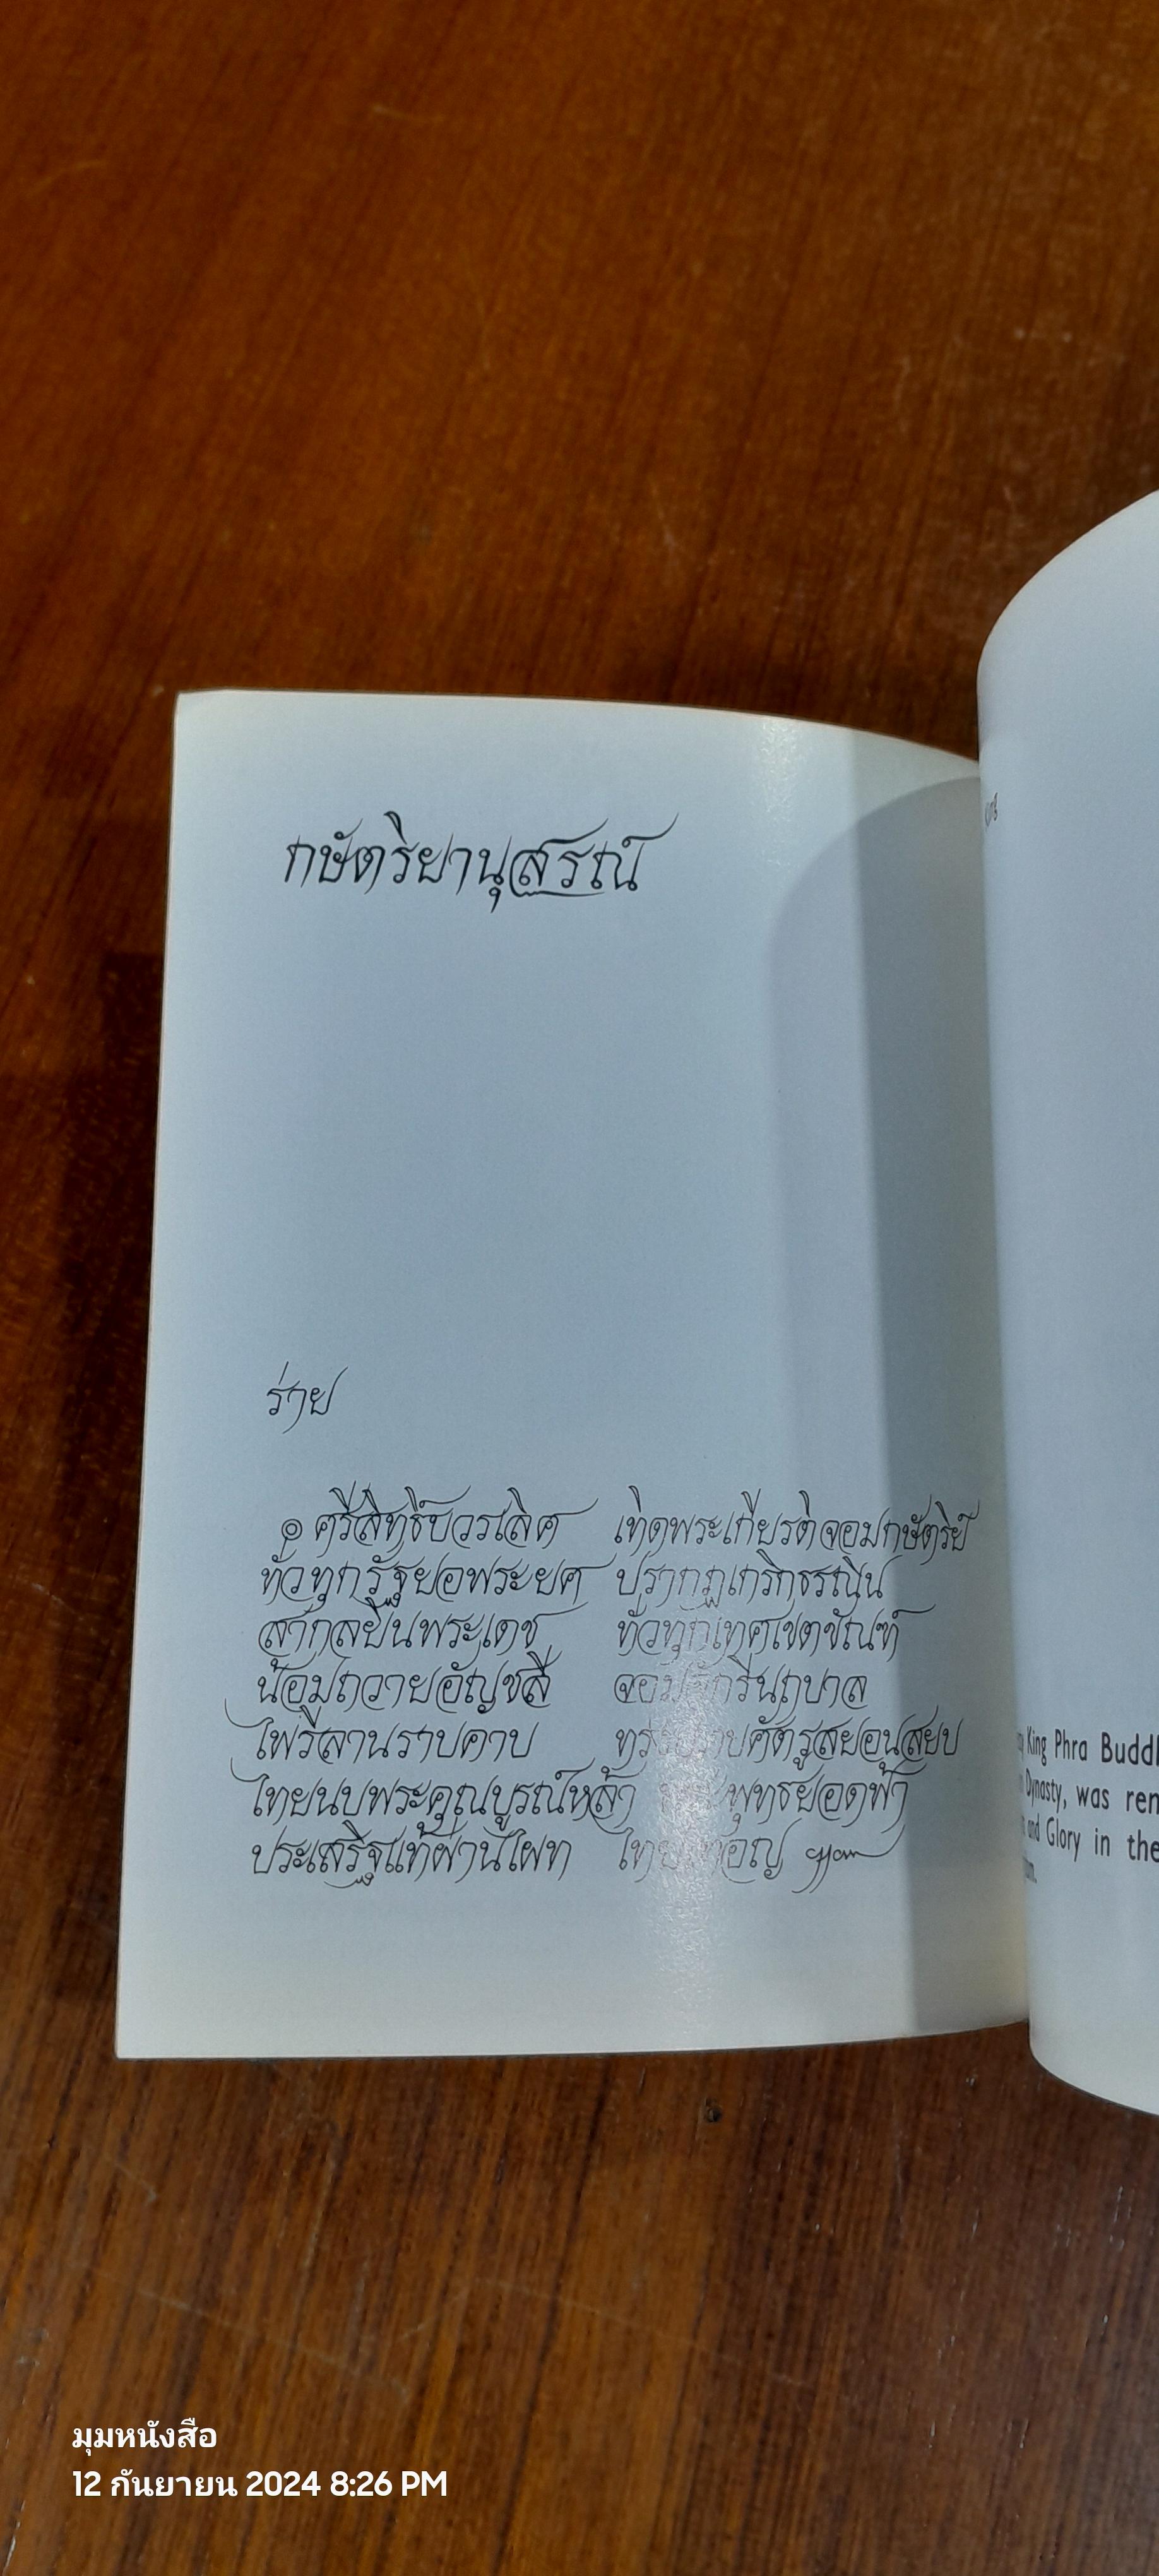 กษัตริยานุสรณ์
ร่าย
๏ ศรีสิทธิ์บวรเลิศ เทิดพระเกียรติจอมกษัตริย์
ทั่วทุกรัฐยอพระยศ ปรากฏเกริกธรณิน
สากลยินพระเดช ทั่วทุกเทศเขตขัณฑ์
น้อมถวายอัญชลี จอมจักรีนฤบาล
ไพรีลานราบคาบ ศัตรูสยอนสยบ
ไทยนบพระคุณบูรณ์หล้า พุทธยอดฟ้า
ประเสริฐแท้ผ่านไผท
King Phra Buddh
Dynasty, was ren
and Glory in the
มุมหนังสือ
12 กันยายน 2024 8:26 PM